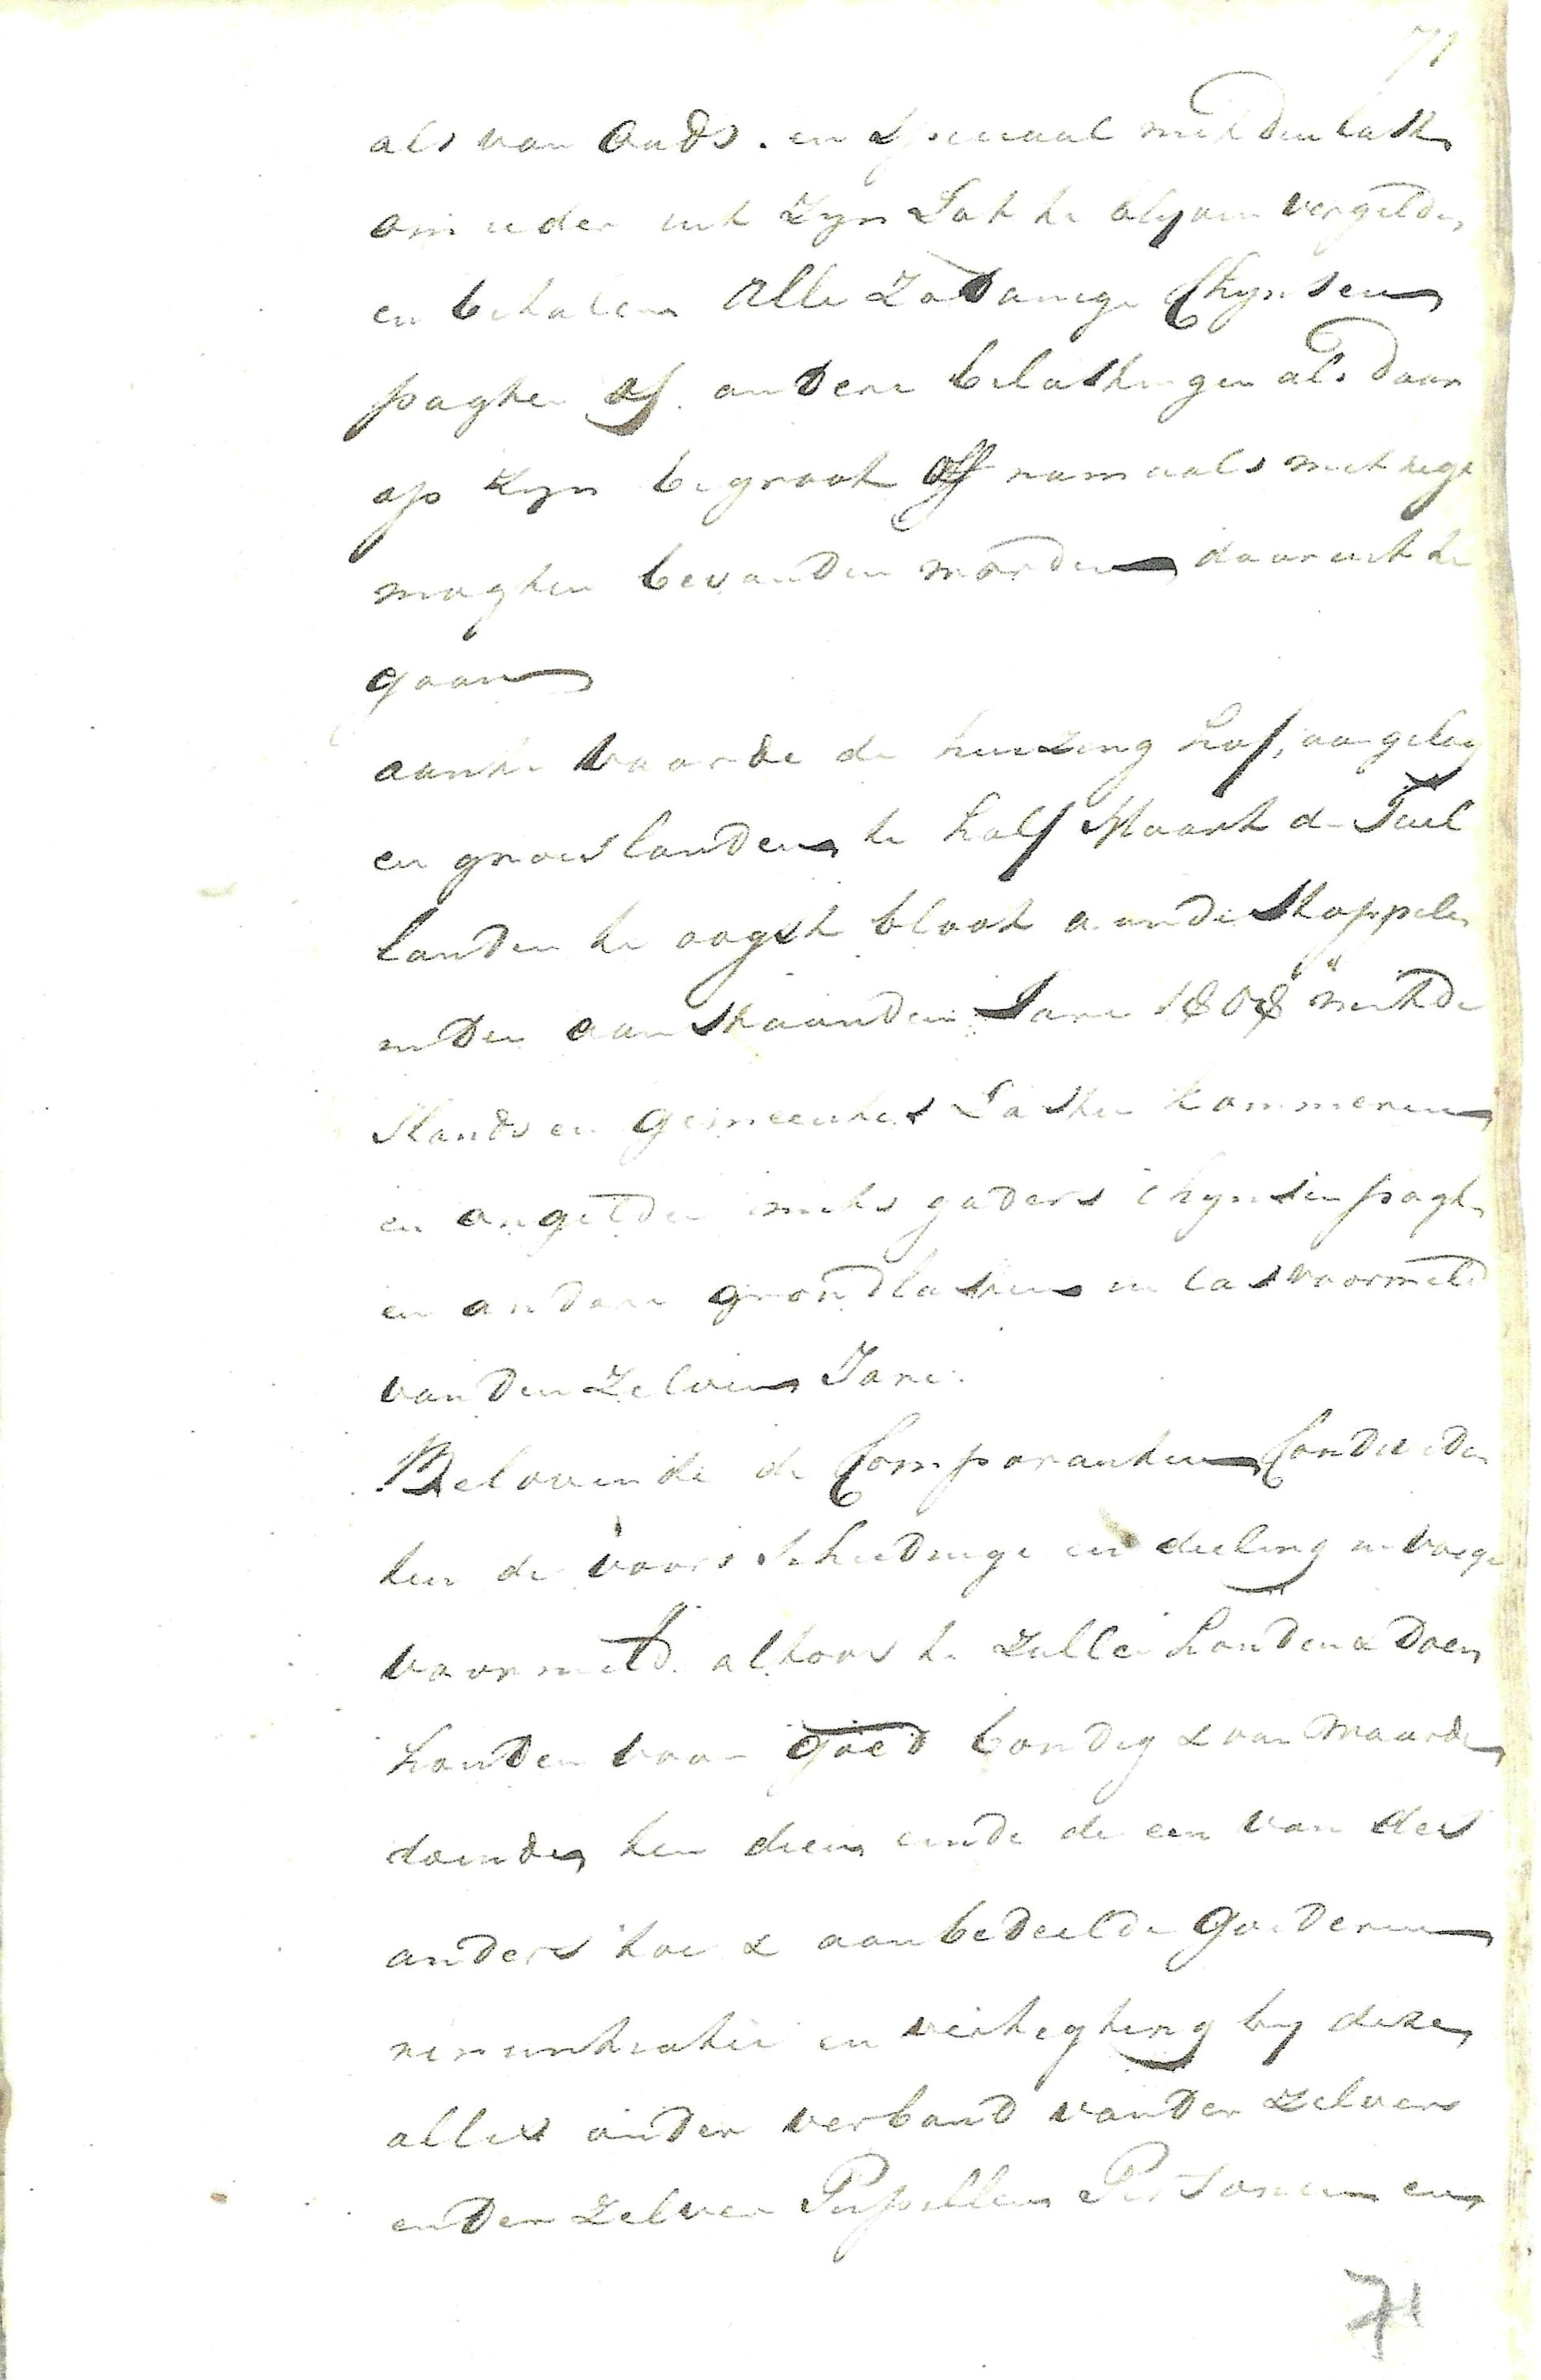 71
als van ouds. en speciaal met den last
om ieder uit Zyn Lot te blyven vergelden
en betalen alle Zodanige Chynsen
pagten of andere belastingen als daar
op Zyn begroot off namaals met regt
mogten bevonden worden daar uit te
gaan
aante vaarde de huizing hof, aangelag
en groeslanden te half Maart de Teul
landen te oogst bloot aan de Stoppelen
inden aanstaanden Jare 1808 met de
slands en gemeentes Lasten kommeren
en ongelden mits gaders chynsen pagten
en andere grondlasten in cas voormeld
van den Zelven Jare.
Belovende de Comparanten Condividen
ten de voors Scheidinge en deeling in voege
voormeld. altoos te Zullen houden & Doen
houden voor goed bondig & van Waarde
doende ten dien einde de een van des
anders toe & aanbedeelde Goederen
renuntiatie en vertegting by deze,
alles onder verband van der Zelver
en der Zelver Pupillen Persoonen en
71